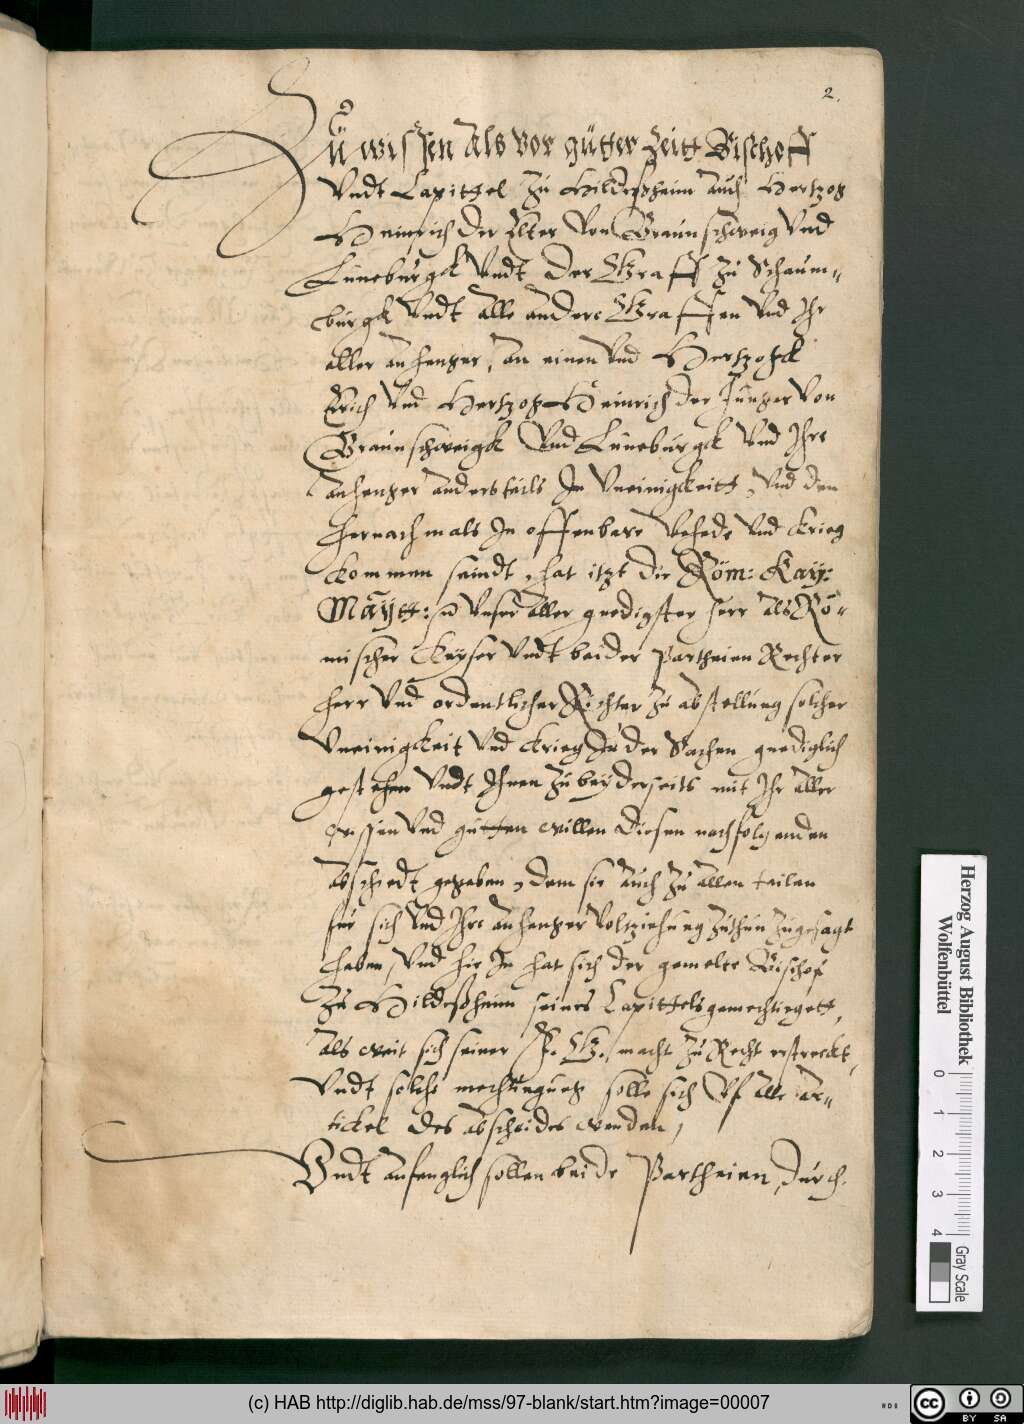 2.
Zu wissen Als vor gutter Zeitt Bischoff
Vndt Capittel zu Hildeßheim auch Hertzog
Heinrich der Elter von Braunschweig Vnd
Luneburgk Vndt der Graff zu Schaum-
burgk Vndt alle andere Graffen Vnd Ihr
aller anhenger, an einen Vnd Hertzogk
Erich Vnd Hertzog Heinrich der Junger Von
Braunschweigk Vnd Luneburgk Vnd Ihre
anhenger anderstheils In Vneinigkeitt, Vnd den
hernachmals In offenbare Vehede Vnd Krieg
kommen seindt, hat itzt die Röm: Kay:
Maÿtt: Vnser aller gnedigster herr als Rö-
mischer Keyser Vndt beider Partheien Rechter
herr Vnd ordentlicher Richter zu abstellung solcher
Vneinigkeit Vnd Krieg In der Sachen gnediglich
gesehen Vndt Ihnen zu beyderseits mit Ihr aller
wissen Vnd gutten willen diesen nachfolgenden
abschiedt gegeben, dem sie auch zu allen teilen
für sich Vnd Ihre anhenger Volziehung zuthun zugesagt
haben, Vnd hie In hat sich der gemelte Bischof
zu Hildeßheim seines Capittels gemechtiget,
als weit sich seiner F. G. macht zu Recht erstreckt,
Vndt solche mechtigung solle sich Vf alle ar-
tickel des abscheides wenden,
Vndt anfenglich sollen beide Partheien, durch
Herzog August Bibliothek
Wolfenbüttel
0 1 2 3 4
Gray Scale
(c) HAB http://diglib.hab.de/mss/97-blank/start.htm?image=00007
cc BY SA